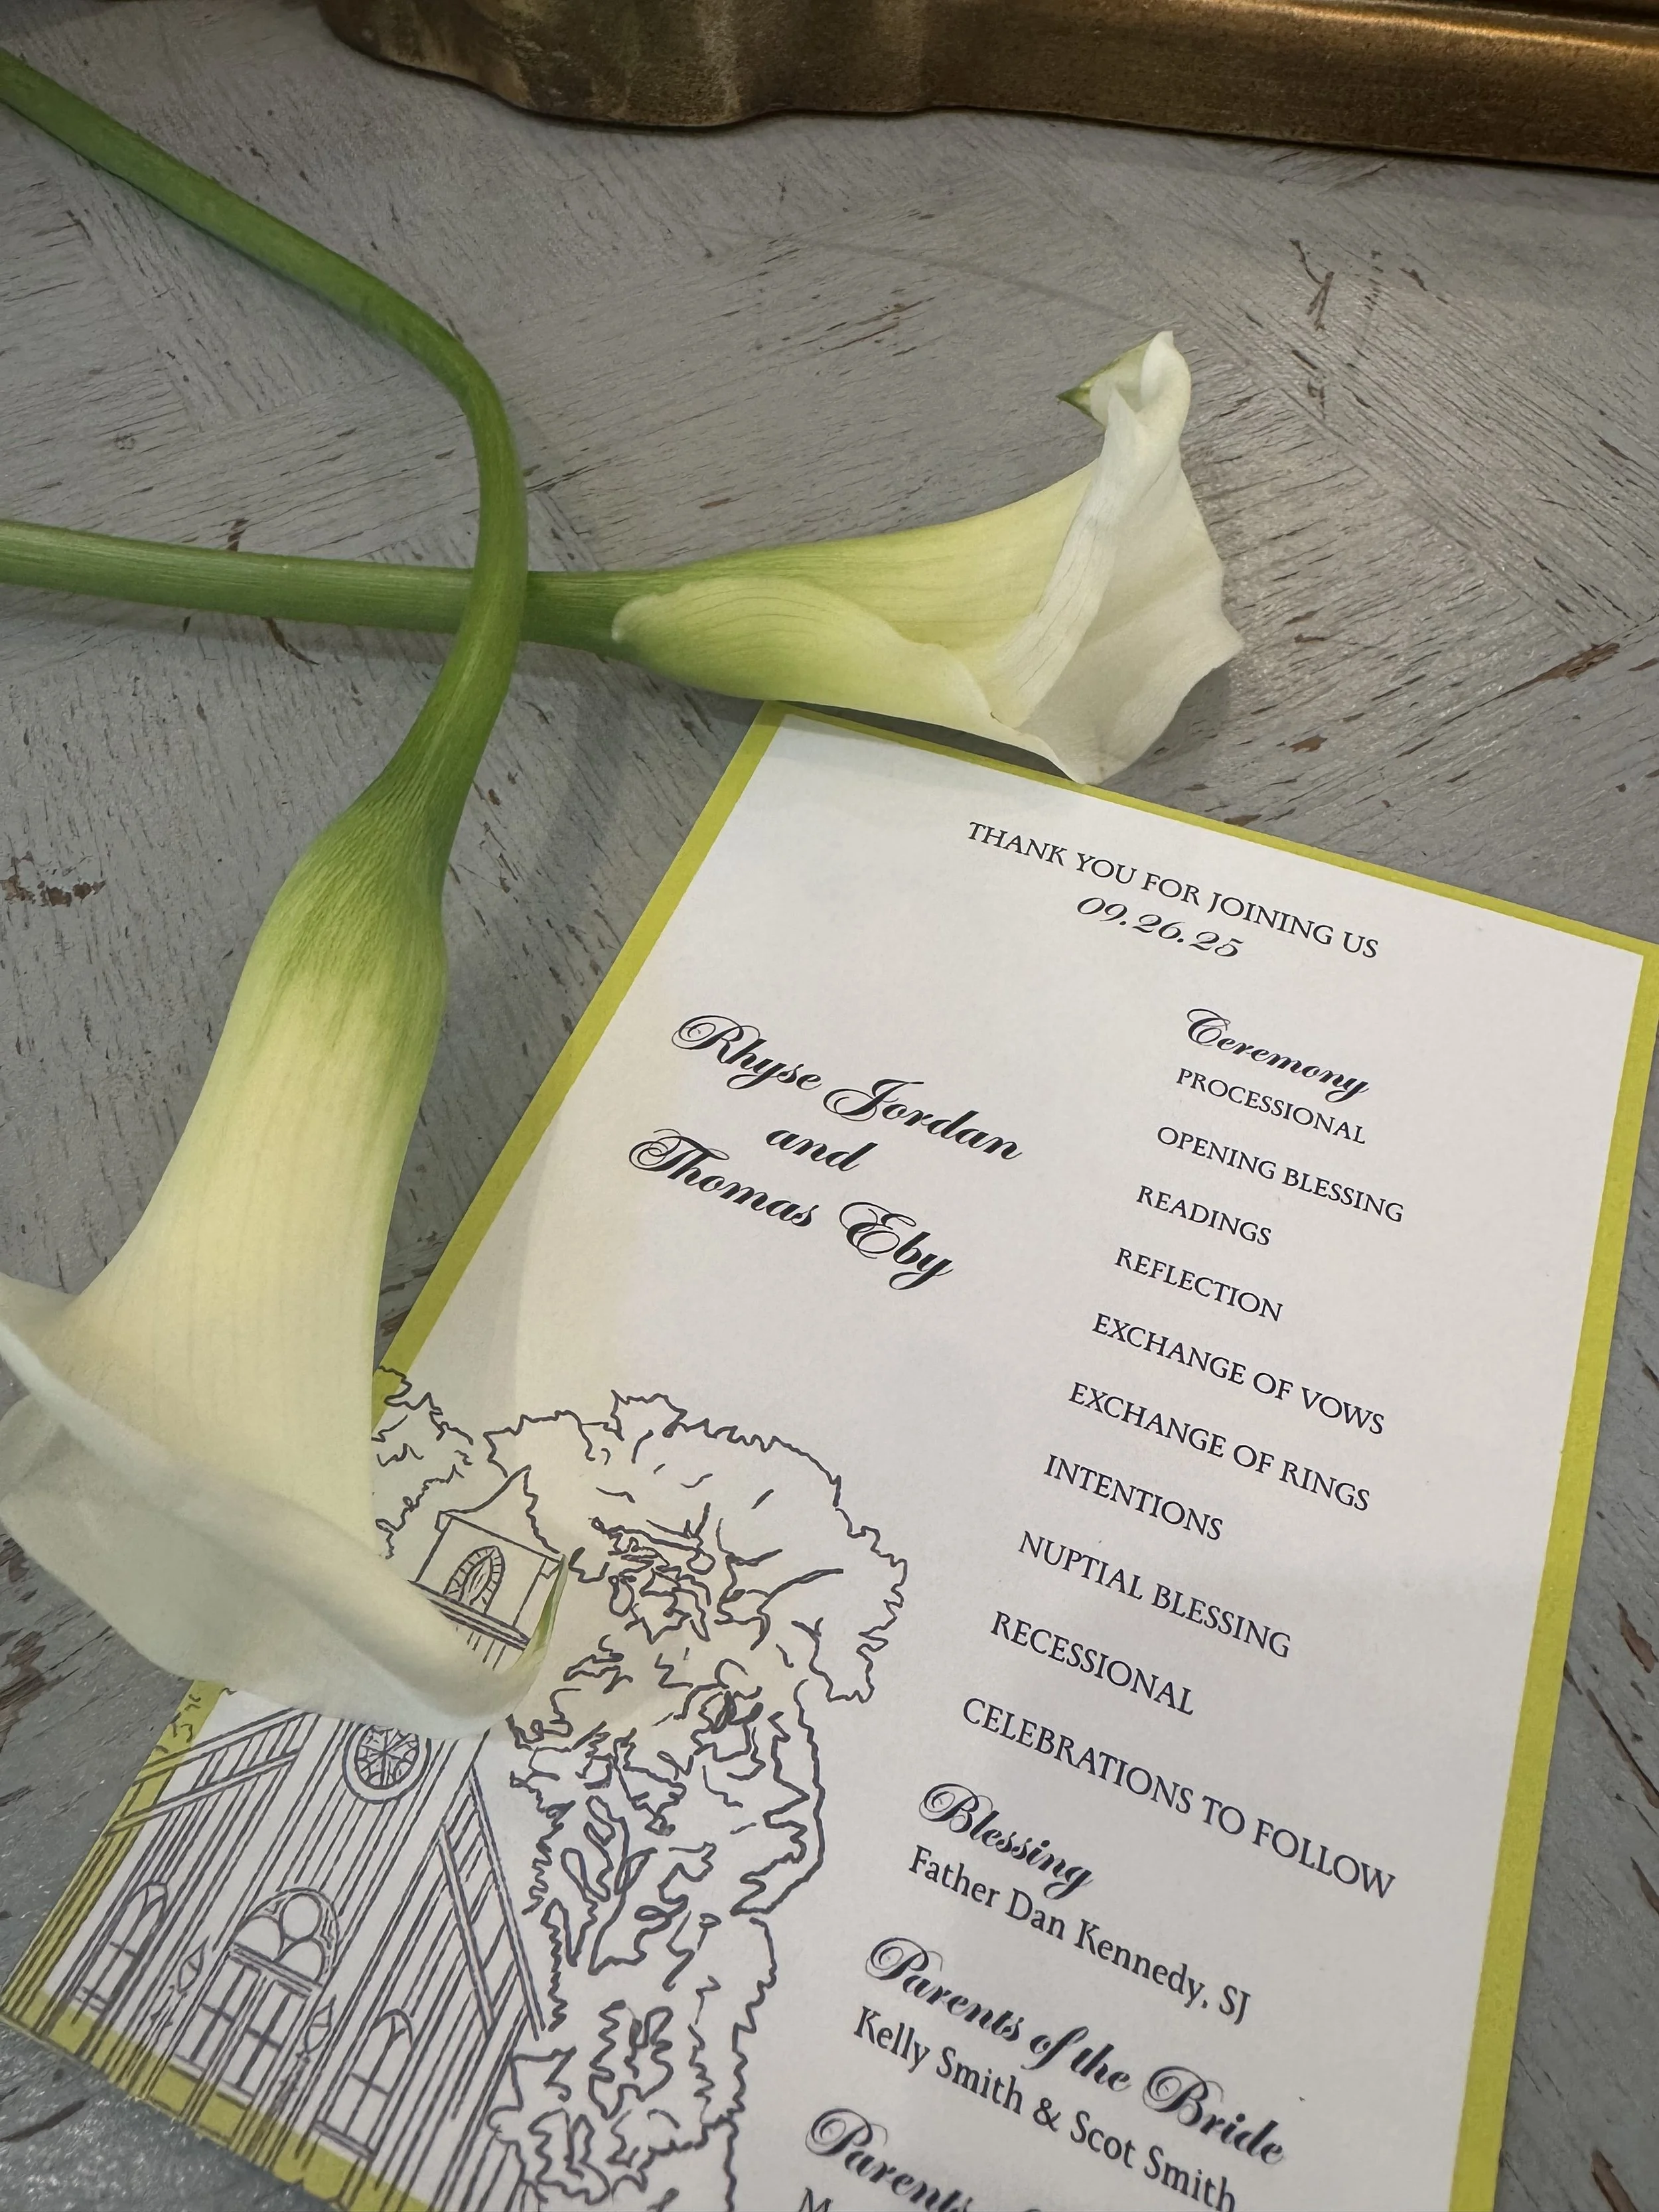 THANK YOU FOR JOINING US
09.26.25
Rhyse Jordan
and
Thomas Eby
Ceremony
PROCESSIONAL
OPENING BLESSING
READINGS
REFLECTION
EXCHANGE OF VOWS
EXCHANGE OF RINGS
INTENTIONS
NUPTIAL BLESSING
RECESSIONAL
CELEBRATIONS TO FOLLOW
Blessing
Father Dan Kennedy, SJ
Parents of the Bride
Kelly Smith & Scot Smith
Parents